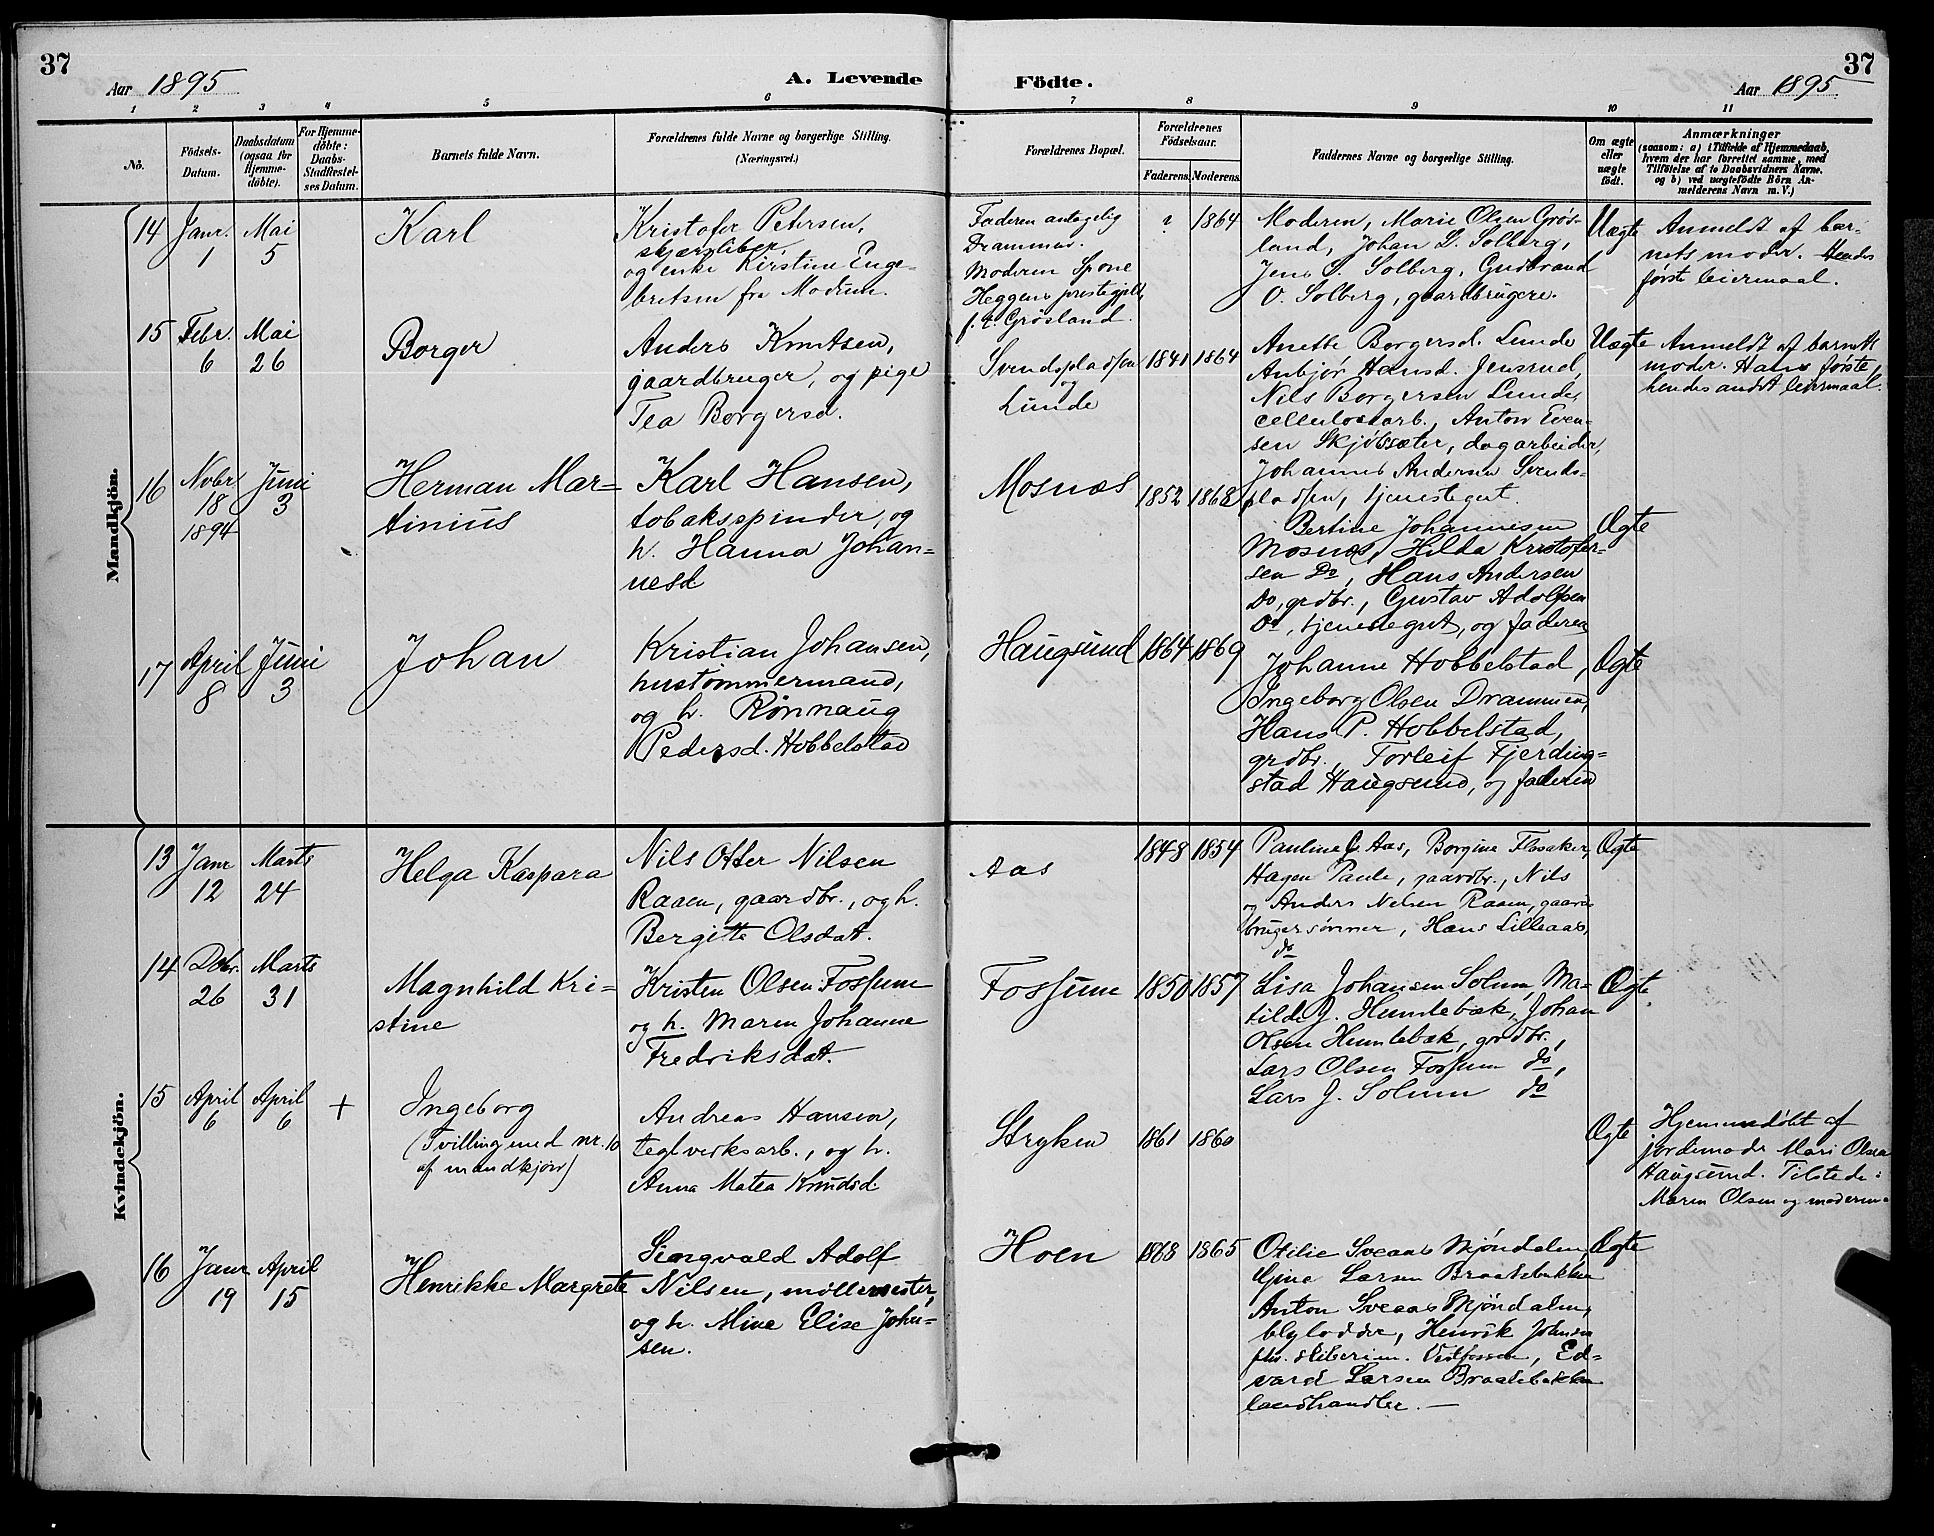 37
Aar 1895
A. Levende
Födte.
Aar 1895
37
1 2 3 4 5 6 7 8 9 10 11
No.
Födsels-
Datum.
Daabsdatum
(ogsaa for
Hjemme-
döbte).
For Hjemme-
döbte:
Daabs-
Stadfæstel-
ses Datum.
Barnets fulde Navn.
Forældrenes fulde Navne og borgerlige Stilling.
(Næringsvei.)
Forældrenes Bopæl.
Forældrenes
Födselsaar.
Faderens. Moderens.
Faddernes Navne og borgerlige Stilling.
Om ægte
eller
uægte
födt.
Anmærkninger
(saasom: a) i Tilfælde af Hjemmedaab,
hvem der har forrettet samme, med
Tilföielse af to Daabsvidners Navne.
og b) ved uægtefödte Börn An-
melderens Navn m. V.)
Mandkjön.
14
Janr.
1
Mai
5
Karl
Kristofer Petersen,
og enke Kirstine Enge-
bretsen fra Modum.
Faderen antagelig
Drammen.
Moderen Spone
Heggens prestegjeld,
f. t. Grøsland.
?
1864
Moderen, Marie Olsen Grøs-
land, Johan L. Solberg,
Jens S. Solberg, Gudbrand
O. Solberg, gaardbrugere.
Uægte
Anmeldt af bar-
nets moder. Hendes
første leiermaal.
15
Febr.
6
Mai
26
Borger
Anders Knutsen,
gaardbruger, og pige
Tea Borgersd.
Svendspladsen
og
Lunde
1841
1864
Anette Borgersd. Lunde
Anbjør Hansd. Jensrud,
Nils Borgersen Lunde,
cellulosearb., Anton Even-
sen Skjøssæter, dagarbeider,
Johannes Andersen Svends-
pladsen, tjenestegut.
Uægte
Anmeldt af barnets
moder. Hans første,
hendes andet leiermaal.
16
Novbr
18
1894
Juni
3
Herman Mar-
tinius
Karl Hansen,
tobaksspinder, og
h. Hanna Johan-
nesd
Mosnæs
1852
1868
Bertine Johannesen
Mosnæs, Hilda Kristofer-
sen Do, Hans Andersen
Do, grdbr., Gustav Adolfsen
Do, tjenestegut, og faderen
Ægte
17
April
8
Juni
3
Johan
Kristian Johansen,
hustømmermand,
og h. Rønnaug
Pedersd. Hobbelstad
Haugsund
1864
1869
Johanne Hobbelstad,
Ingeborg Olsen Drammen,
Hans P. Hobbelstad,
grdbr., Torleif Fjerding-
stad Haugsund, og faderen
Ægte
Kvindekjön.
13
Janr
12
Marts
24
Helga Kaspara
Nils Otter Nilsen
Raaen, gaardbr., og h.
Bergitte Olsdat.
Aas
1848
1854
Pauline Aas, Borgine Flesaker,
Hagen Paule, gaardbr., Nils
og Anders Nilsen Raaen, gaard-
brugersønner, Hans Lilleaas,
do
Ægte
14
26
Marts
31
Magnhild Kri-
stine
Kristen Olsen Fossum
og h. Maren Johanne
Fredriksdat.
Fossum
1850
1857
Lisa Johansen Solum, Ma-
tilde J. Humlebæk, Johan
Olsen Humlebæk, grdbr.,
Lars Olsen Fossum do,
Lars J. Solum do
Ægte
15
April
6
April
6
+
Ingeborg
(Tvilling med nr. 10
af mandkjøn)
Andreas Hansen,
teglverksarb., og h.
Anna Matea Knudsd.
Stryken
1861
1860
Ægte
Hjemmedøbt af
jordemoder Mari Olsen
Haugsund. Tilstede:
Maren Olsen og moderen
16
Janr
19
April
15
Henrikke Margrete
Sigvald Adolf
Nilsen, møllemester,
og h. Mina Elise John-
sen.
Hoen
1868
1865
Otilie Sveaas Mjøndalen,
Gina Larsen Braatebakken
Anton Sveaas Mjøndalen,
Henrik Johnsen
Vestfossen, Ed-
vard Larsen Braatebakken
landhandler.
Ægte